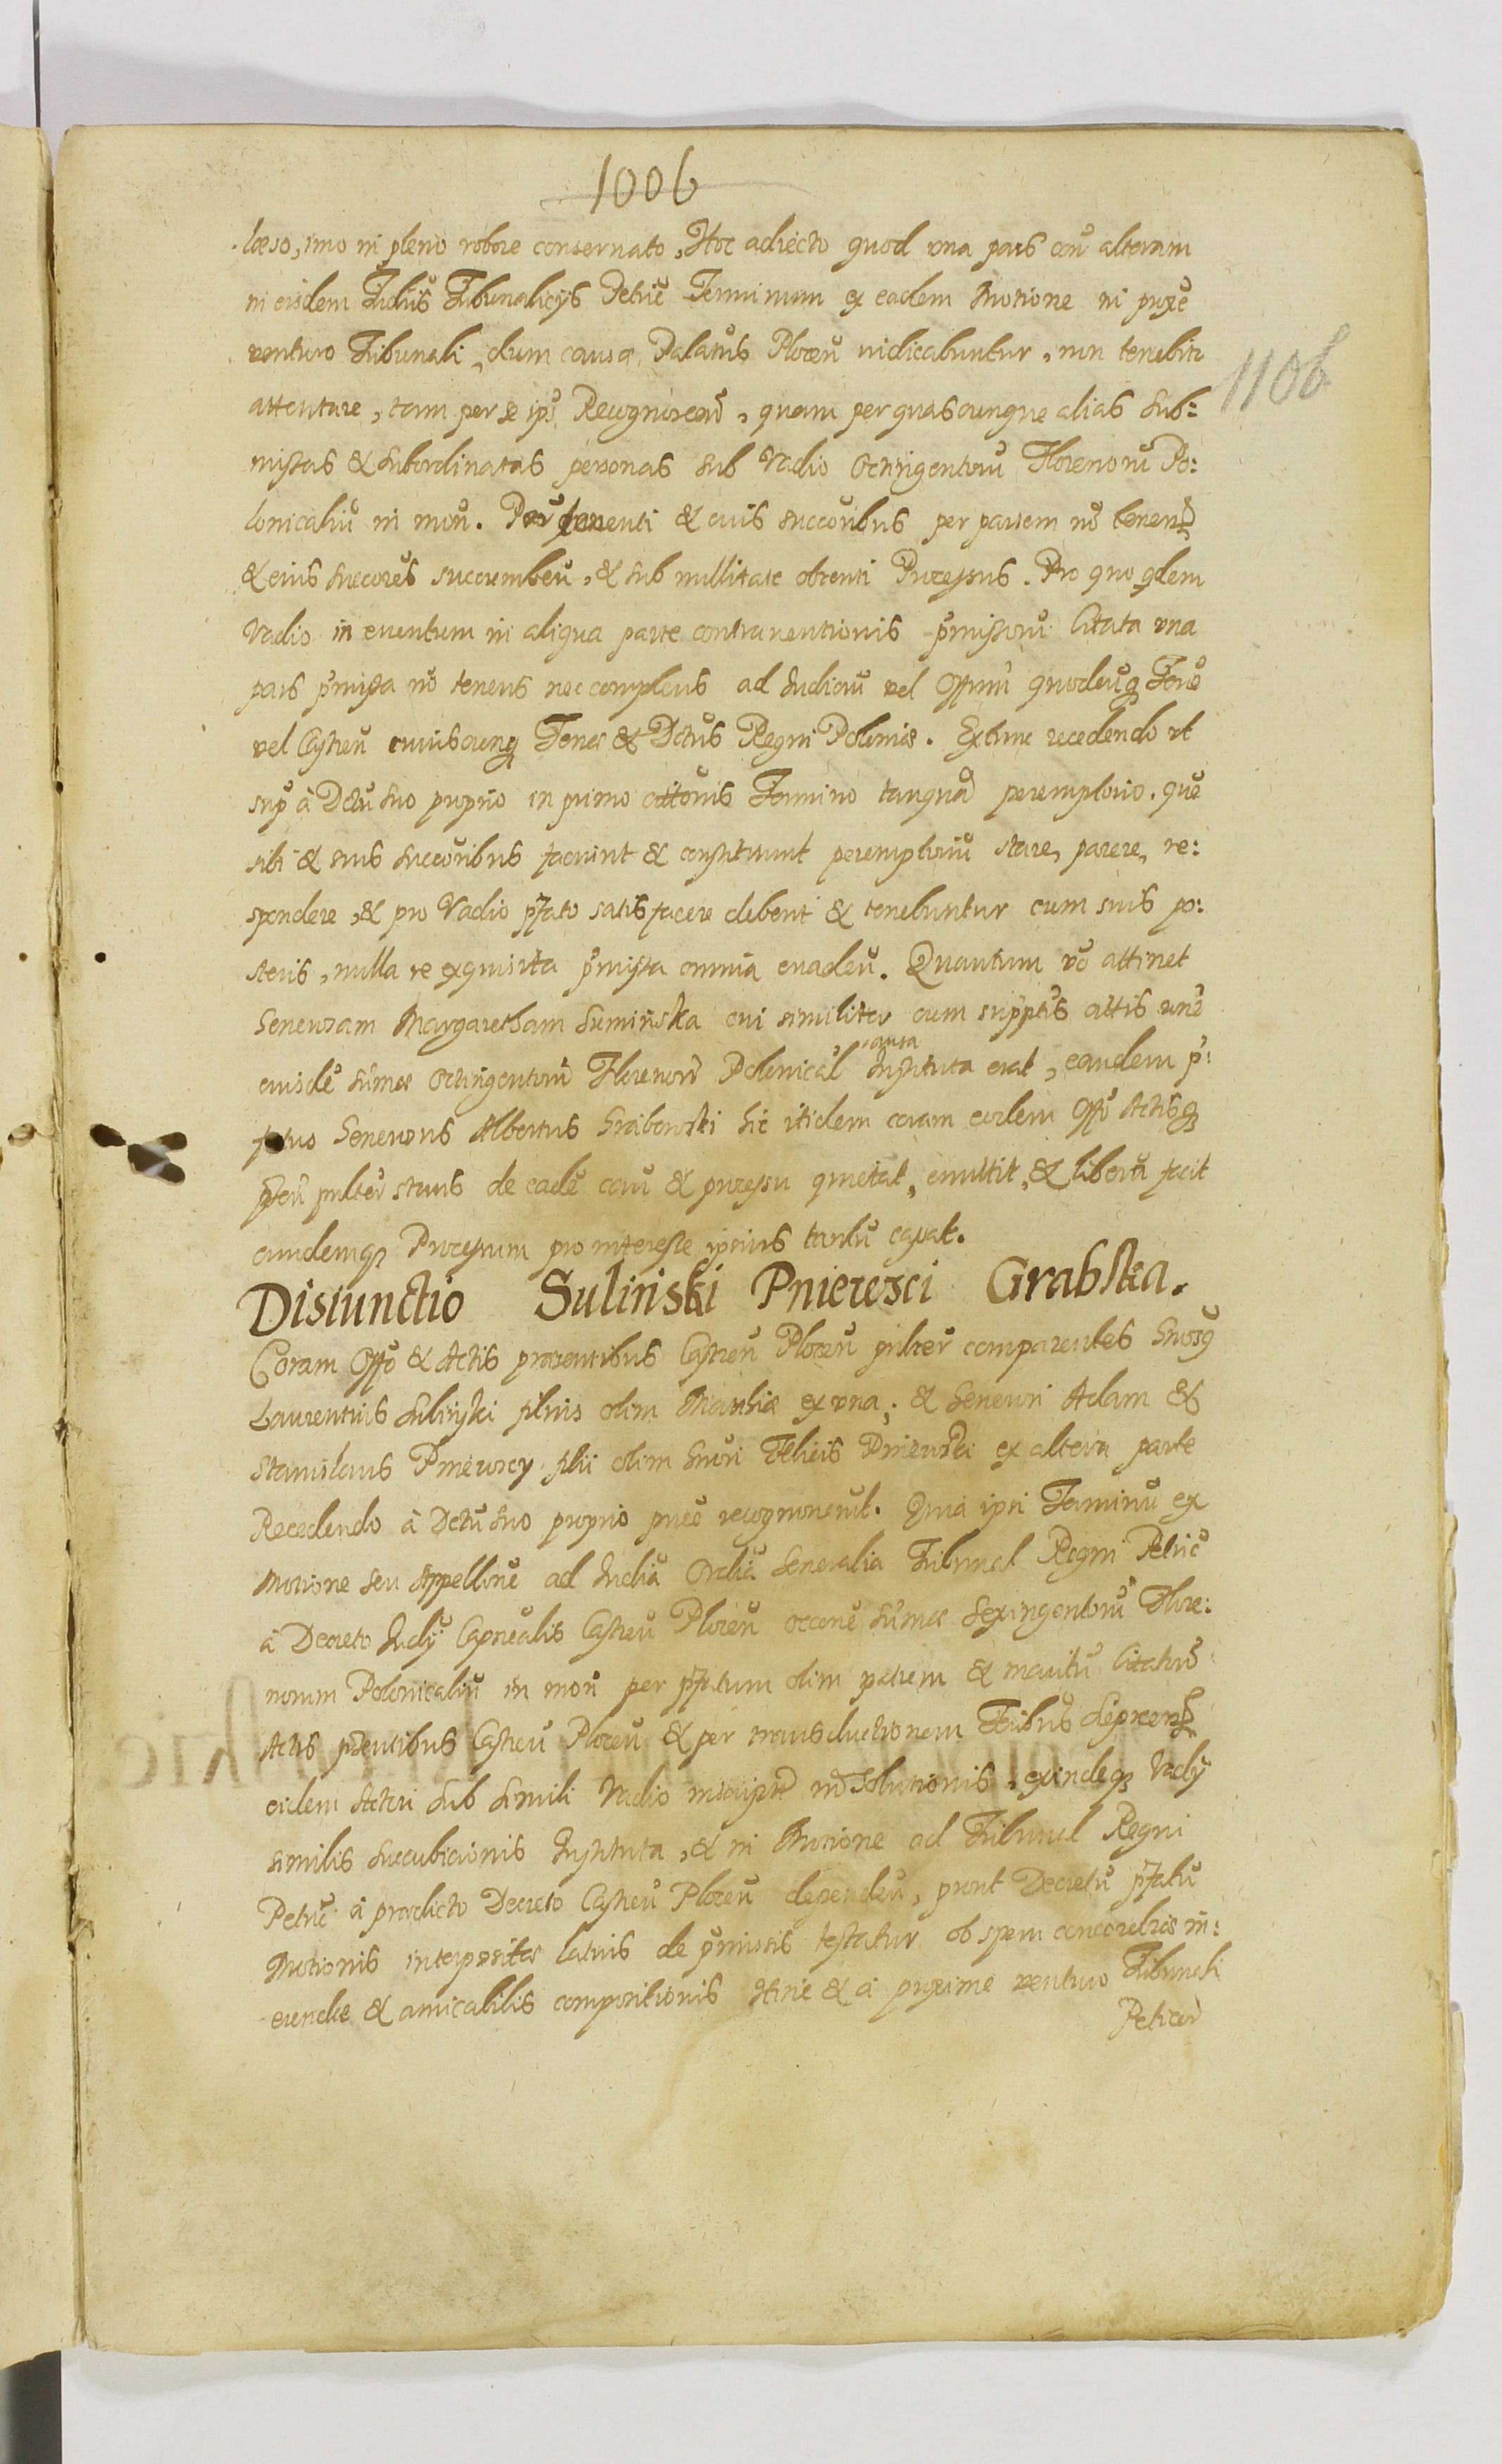 1006
1106
læso, imo in pleno robore conservato, Hoc adiecto quod vna pars coñ alteram
in eisdem Iudiis Tribunalicijs Petric̃ Terminum ex eadem Motione in proxe
venturo Tribunali, dum causæ Palatus Plocen̄ iudicabuntur, non tenebit
attentare, tam per se ips̃ Recognoscen̄, quam per quascunque alias sub:
missas & subordinatas personas sub Vadio Octingentorū Florenorū Po:
lonicaliū in mon̄. Parti tenenti & eius succoribus per partem nō tenen̄
& eius succores succumben̄, & sub nullitate obtenti Processus. Pro quo qdem
Vadio in euentum in aliqua parte contrauentionis pr̄missorū Citata vna
pars pr̄missa nō tenens nec complens ad Iudiciū vel Offm̄ quodcūq Terre
vel Castren̄ cuiuscunq Terræ & Dctus Regni Poloniæ. Extunc recedendo vt
sup̄ à Dctu suo proprio in primo citt̄onis Termino tanquā peremptorio, que
sibi & suis succoribus faciunt & constituunt peremptoriū stare, parere, re:
spondere, & pro Vadio pr̄fato satisfacere debent & tenebuntur cum suis po:
steris, nulla re exquisita pr̄missa omnia euaden̄. Quantum vō attinet
Generosam Margaretham Sumińska cui similiter cum suppt̄is actis vn̄e
eiusdē sūmæ Octingentorū Florenorū Polonical causa Instituta erat, eandem p̄:
fatus Generosus Albertus Grabowski hic itidem coram eodem Offō Actisq
pn̄tibus prlter stans de eadē cau & processu quietat, emittit, & liberā facit
eundemq Processum pro interesse ipsius tantū cassat.
Disiunctio Suliński Pniewsci Grabska.
Coram Offō & Actis præsentibus Castren̄ Plocen̄ prlter comparentes Gnosq
Laurentius Suliński filius olim Mathiæ ex vna; & Generosi Adam &
Stanislaus Pniewscy filii olim Gnosi Felicis Pniewski ex altera parte
Recedendo à Dctu suo proprio pnēe recognouerut. Quia ipsi Terminū ex
Motione seu Appellone ad Iudia Ordia Generalia Tribunal Regni Petric̃
à Decreto Iudij Capnealis Castren̄ Plocen̄ occone sūmæ Sexingentorū Flore:
norum Polonicaliū in mon̄ per pr̄fatum olim patrem & maritū Citatorū
Actis pn̄tibus Castren̄ Plocen̄ & per transductionem Fribus
eidem Actori sub simili Vadio inscriptæ nō solutionis, exindeq Vadij
similis succubitionis Instituta, & in Motione ad Tribunal Regni
Petric̃ à prædicto Decreto Castren̄ Plocen̄ dependen̄, prout Decretū pr̄fatū
Motionis interpositæ latius de pr̄missis testatur ob spem concordiæ in:
eundæ & amicabilis compositionis Hinc & à proxime venturo Tribunali
Petricov